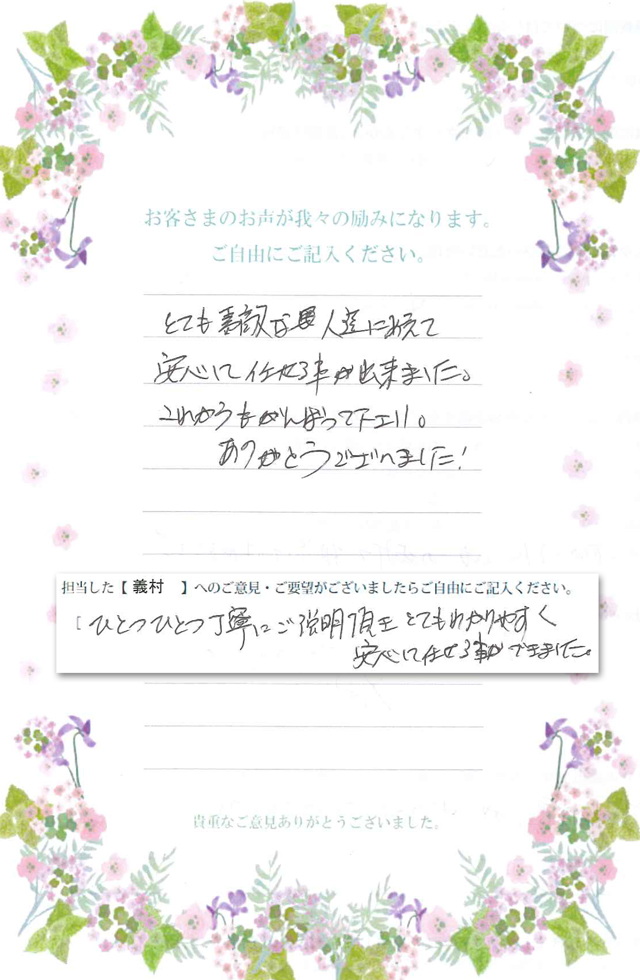 お客さまのお声が我々の励みになります。
ご自由にご記入ください。
とても素敵な 人達に
安心して任せる事が出来ました。
これからもがんばって下さい。
ありがとうございました!
担当した【 義村 】へのご意見・ご要望がございましたらご自由にご記入ください。
ひとつひとつ丁寧にご説明頂き とてもわかりやすく
安心して任せる事ができました。
貴重なご意見ありがとうございました。